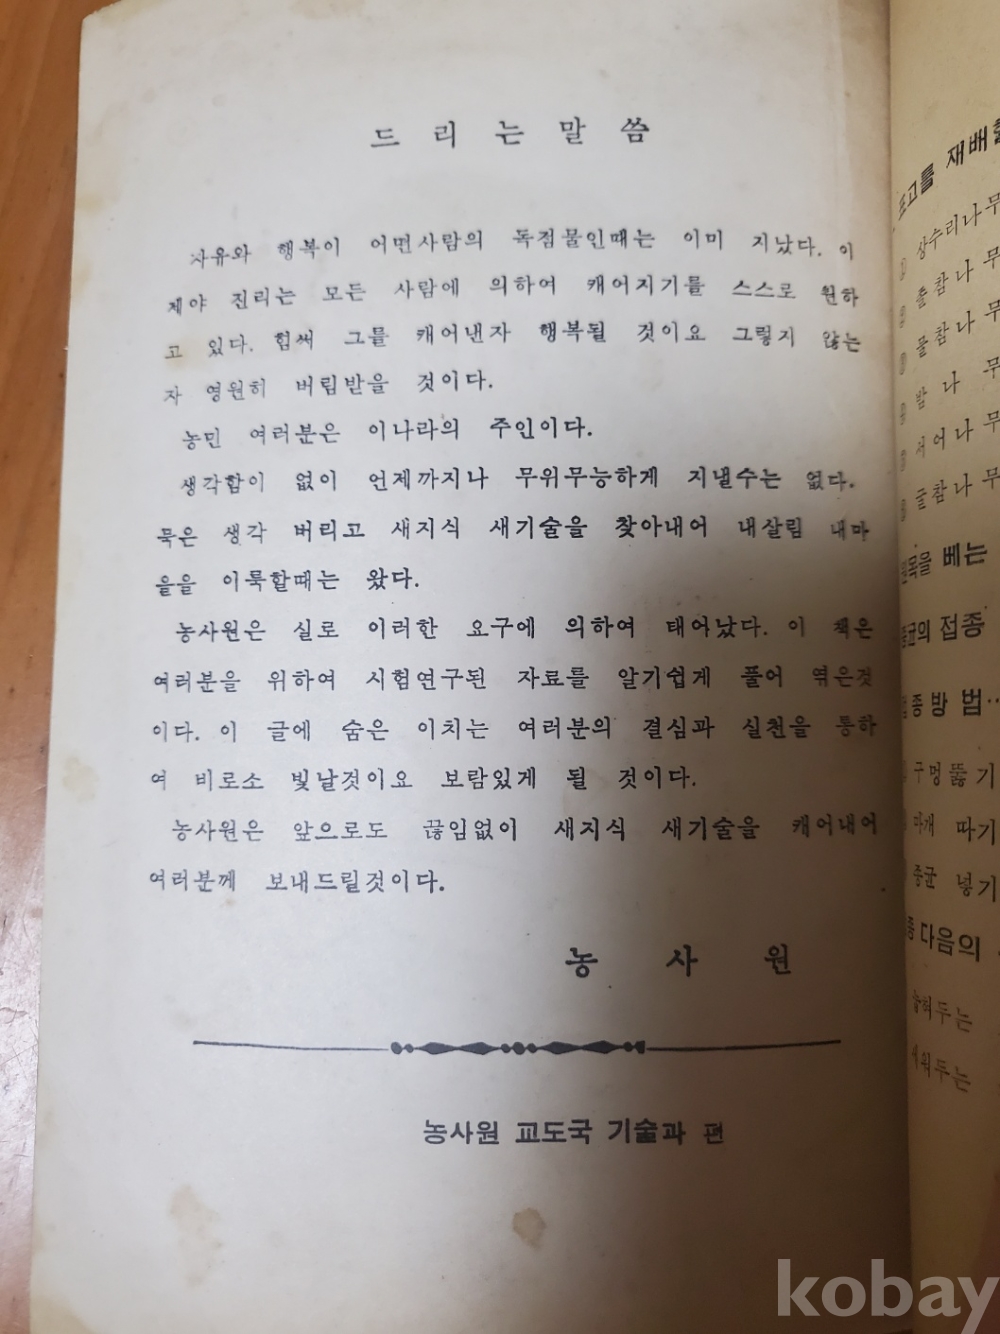 드리는말씀
자유와 행복이 어떤사람의 독점물인때는 이미 지났다. 이
제야 진리는 모든 사람에 의하여 캐어지기를 스스로 원하
고 있다. 힘써 그를 캐어낸자 행복될 것이요 그렇지 않는
자 영원히 버림받을 것이다.
농민 여러분은 이나라의 주인이다.
생각함이 없이 언제까지나 무위무능하게 지낼수는 없다.
묵은 생각 버리고 새지식 새기술을 찾아내어 내살림 내마
을을 이룩할때는 왔다.
농사원은 실로 이러한 요구에 의하여 태어났다. 이 책은
여러분을 위하여 시험연구된 자료를 알기쉽게 풀어 엮은것
이다. 이 글에 숨은 이치는 여러분의 결심과 실천을 통하
여 비로소 빛날것이요 보람있게 될 것이다.
농사원은 앞으로도 끊임없이 새지식 새기술을 캐어내어
여러분께 보내드릴것이다.
농사원
농사원 교도국 기술과 편
표고를 재배할
① 상수리나무
② 졸참나무
③ 물참나무
④ 밤나무
⑤ 서어나무
⑥ 굴참나무
원목을 베는
종균의 접종
접종방법…
구멍뚫기
마개 따기
종균 넣기
다음의
눕혀두는
세워두는
kobay